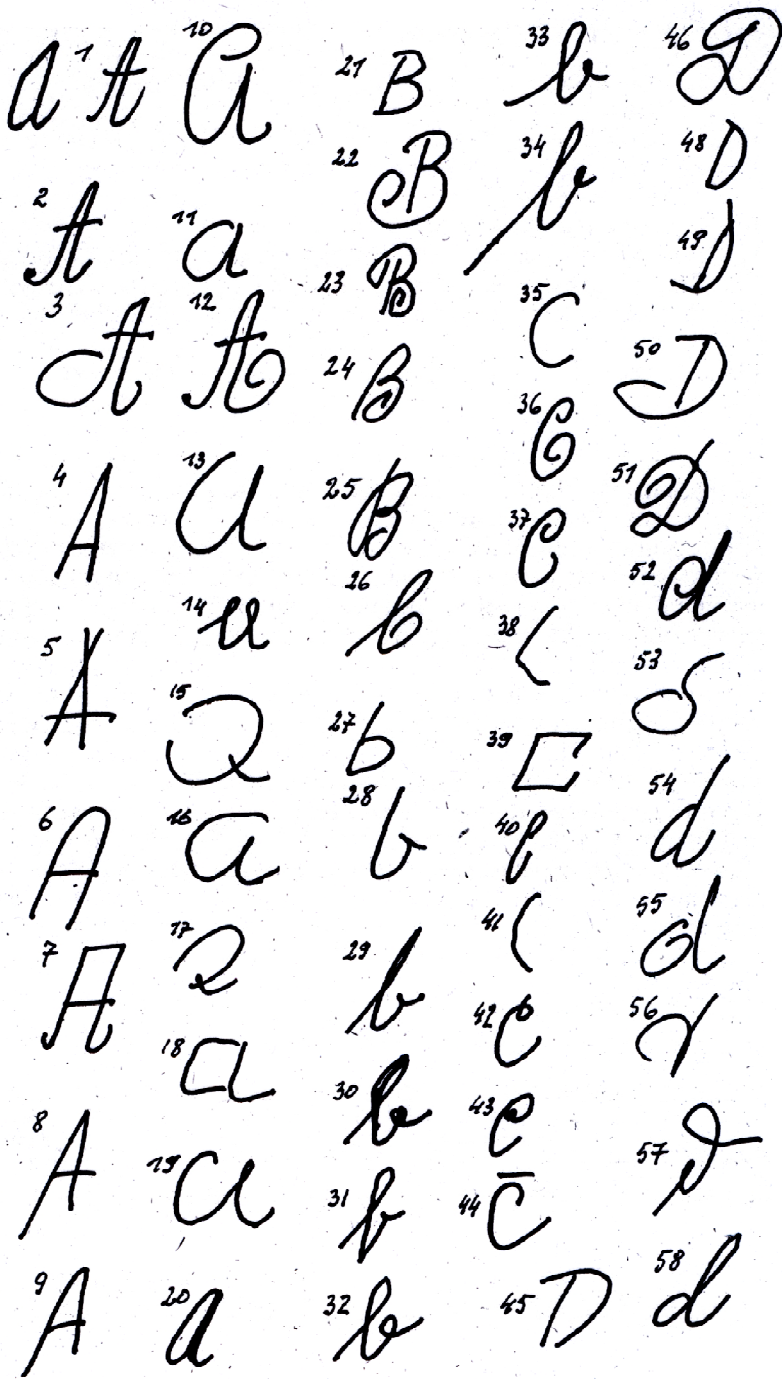 A 1 A
2 A
3 A
4 A
5 A
6 A
7 A
8 A
9 A
10 A
11 a
12 A
13 a
14 a
15 Q
16 a
17 Q
18 a
19 a
20 a
21 B
22 B
23 B
24 B
25 B
26 b
27 b
28 b
29 b
30 b
31 b
32 b
33 b
34 b
35 C
36 C
37 C
38 C
39 C
40 C
41 C
42 C
43 C
44 C̄
45 D
46 D
48 D
49 D
50 D
51 D
52 d
53 d
54 d
55 d
56 d
57 d
58 d